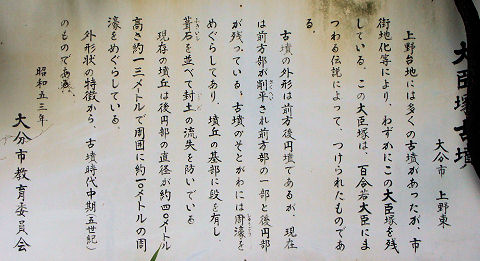 大臣塚古墳
大分市 上野東
上野台地には多くの古墳があったが、市
街地化等により、わずかにこの大臣塚を残
している。この大臣塚は、百合若大臣にま
つわる伝説によって、つけられたものであ
る。
古墳の外形は前方後円墳であるが、現在
は前方部が削平され前方部の一部と後円部
が残っている。古墳のそとがわには周濠を
めぐらしてあり、墳丘の基部に段を有し、
葺石を並べて封土の流失を防いでいる
現存の墳丘は後円部の直径が約四〇メートル
高さ約一三メートルで周囲に約一〇メートルの周
濠をめぐらしている。
外形状の特徴から、古墳時代中期(五世紀)
のものである。
昭和五三年
大分市教育委員会